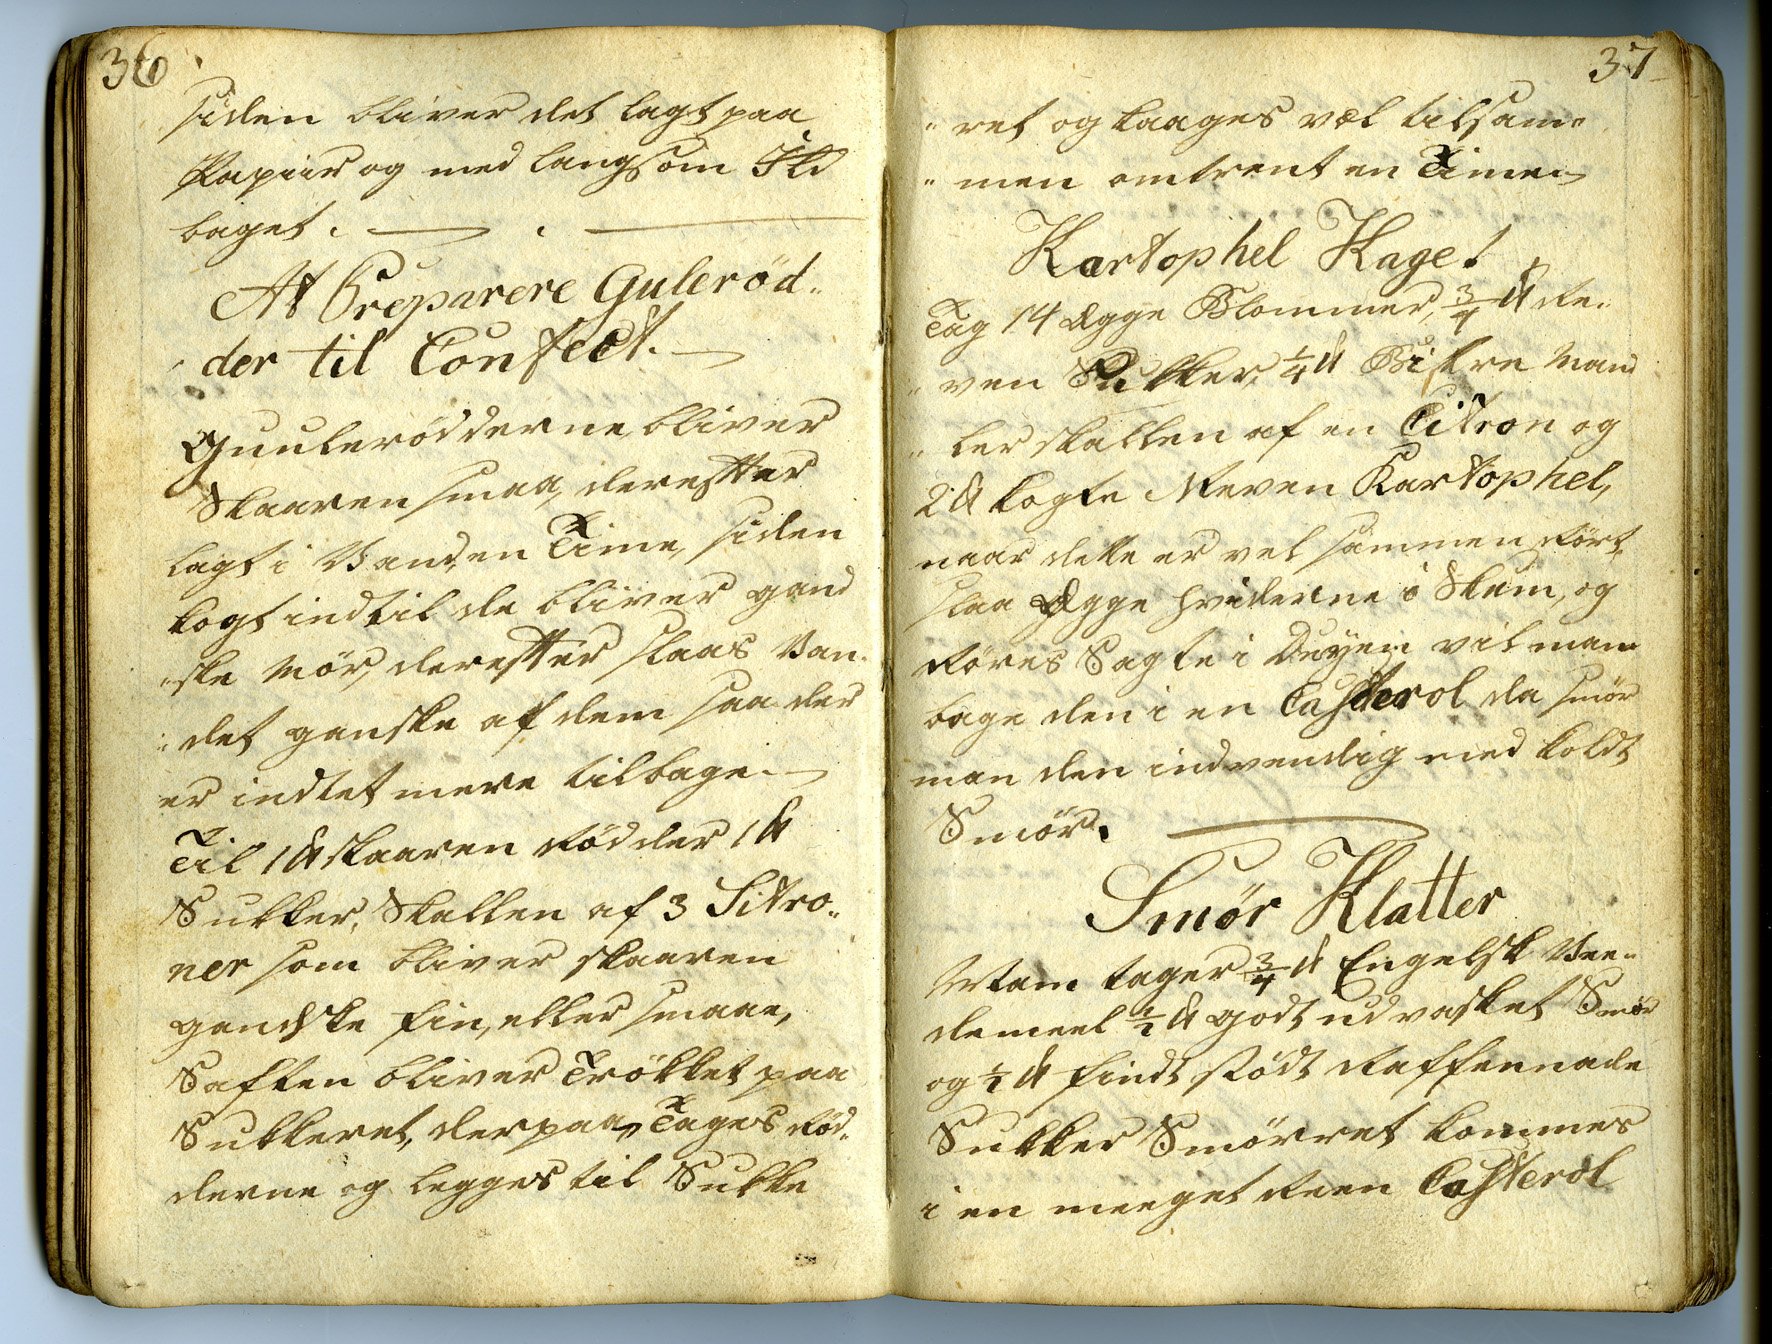 36
siden bliver det lagt paa
Papiir og med langsom Ild
baget.
At Preparere Gulerød„
der til Confect.
Guulerødderne bliver
Skaaren smaa, derefter
lagt i Vand en Time, siden
kogt indtil de bliver gand
„ske Mør, derefter slaas Van„
„det ganske af dem saa der
er indtet mere tilbage.
Til 1 ℔ skaaren Rødder 1 ℔
Sukker, Skallen af 3 Sitro„
ner som bliver skaaren
gandske fin, eller smaae,
Saften bliver Trökket paa
Sukkeret, derpaa Tages Rød„
derne og legges til Sukke
37
„ret og kaages vel tilsam„
„men omtrent en Time
Kartophel Kage!
Tag 14 Ægge Blommer, 3/4 ℔ Re„
„ven Sukker, 1/4 ℔ Bittre Mand
„ler skallen af en Citron og
2 ℔ kogte Reven Kartophel,
naar dette er vel sammen Rørt,
slaa Ægge Hviderne i Skum, og
Røres Sagte i Deyen vil man
bage den i en Casterol da smør
man den indvendig med koldt
Smør.
Smør Klatter
Mam tager 3/4 ℔ Engelsk Vee„
demeel 1/2 ℔ godt udvasket Smør
og 1/2 ℔ findt stødt Raffennade
Sukker Smørret kommes
i en meeget Reen Casterol